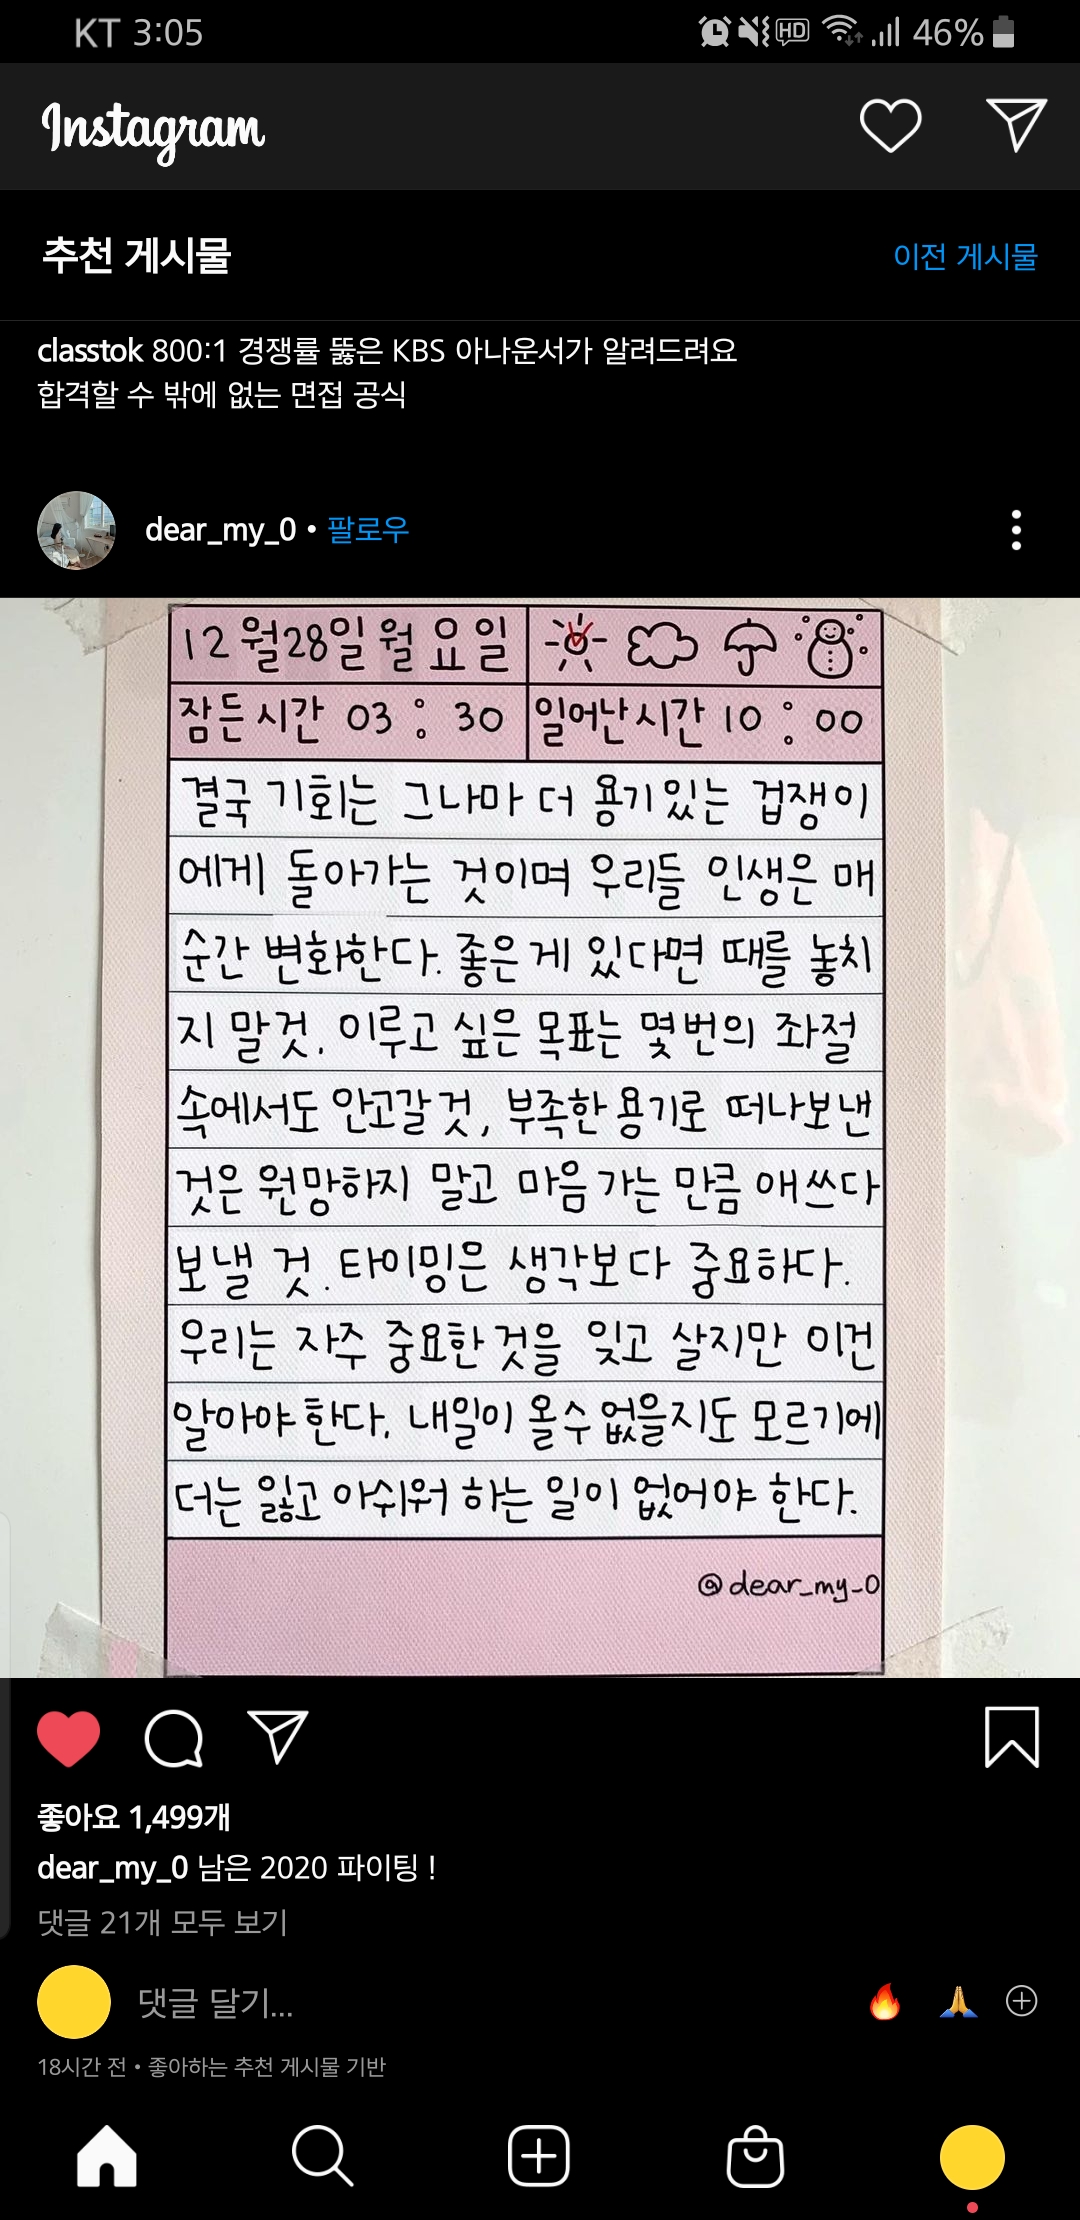 KT 3:05 HD 46%
Instagram
추천 게시물 이전 게시물
classtok 800:1 경쟁률 뚫은 KBS 아나운서가 알려드려요
합격할 수 밖에 없는 면접 공식
dear_my_0 • 팔로우
12월28일 월요일
잠든시간 03 : 30 일어난시간 10 : 00
결국 기회는 그나마 더 용기있는 겁쟁이
에게 돌아가는 것이며 우리들 인생은 매
순간 변화한다. 좋은게 있다면 때를 놓치
지 말것. 이루고 싶은 목표는 몇번의 좌절
속에서도 안고갈것, 부족한 용기로 떠나보낸
것은 원망하지 말고 마음가는 만큼 애쓰다
보낼 것. 타이밍은 생각보다 중요하다.
우리는 자주 중요한것을 잊고 살지만 이건
알아야한다. 내일이 올수없을지도 모르기에
더는 잃고 아쉬워하는 일이 없어야 한다.
@dear_my_0
좋아요 1,499개
dear_my_0 남은 2020 파이팅 !
댓글 21개 모두 보기
댓글 달기...
18시간 전 • 좋아하는 추천 게시물 기반